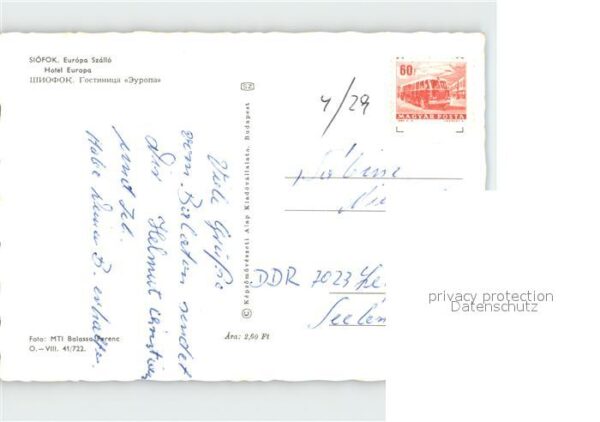 SIÓFOK. Európa Szálló
Hotel Europa
ШИОФОК. Гостиница «Эуропа»
60f
MAGYAR POSTA
4/29
Viele Grüße
vom Balaton sendet
Dir Helmut
und Jeb.
Habe Deine B. erhalten.
© Képzőművészeti Alap Kiadóvállalata, Budapest
Sabine
DDR 7023 Le
Foto: MTI Balassa Ferenc
O.—VIII. 41/722.
Ára: 2,60 Ft
privacy protection
Datenschutz